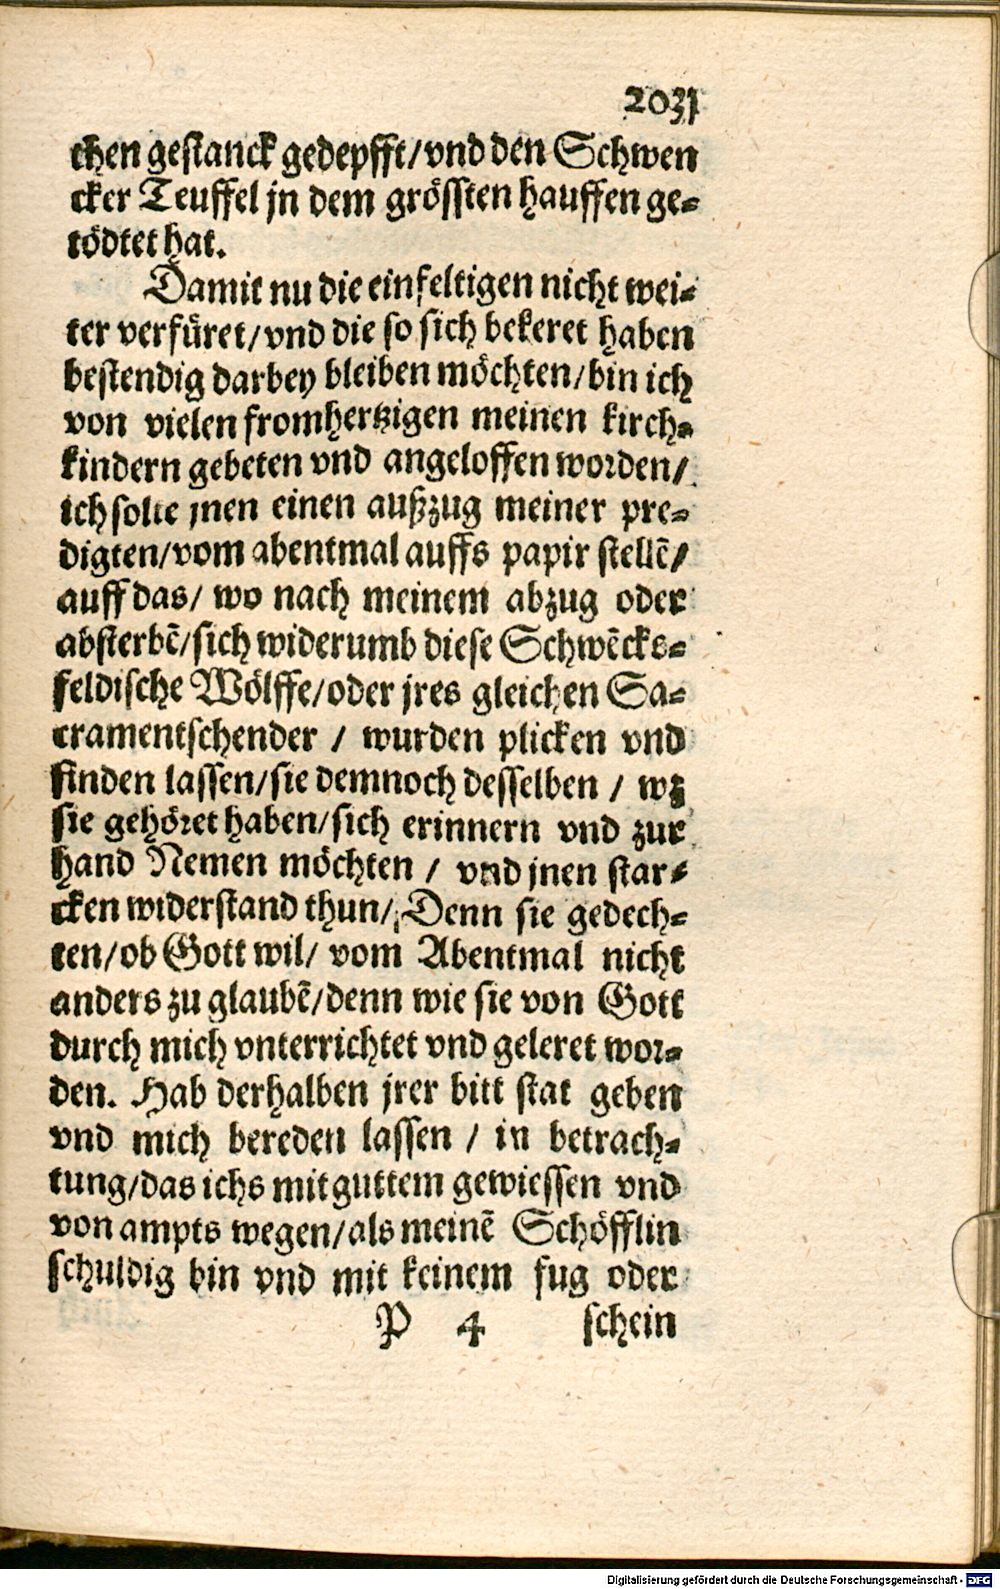 2031
chen gestanck gedepfft/vnd den Schwen
cker Teuffel jn dem grössten hauffen ge-
tödtet hat.
Damit nu die einfeltigen nicht wei-
ter verfüret/vnd die so sich bekeret haben
bestendig darbey bleiben möchten/bin ich
von vielen fromhertzigen meinen kirch-
kindern gebeten vnd angeloffen worden/
ich solte jnen einen außzug meiner pre-
digten/vom abentmal auffs papir stellē/
auff das/ wo nach meinem abzug oder
absterbē/sich widerumb diese Schwēcks-
feldische Wölffe/oder jres gleichen Sa-
cramentschender / wurden plicken vnd
finden lassen/sie demnoch desselben / wz
sie gehöret haben/sich erinnern vnd zur
hand Nemen möchten / vnd jnen star-
cken widerstand thun/ Denn sie gedech-
ten/ob Gott wil/ vom Abentmal nicht
anders zu glaubē/denn wie sie von Gott
durch mich vnterrichtet vnd geleret wor-
den. Hab derhalben jrer bitt stat geben
vnd mich bereden lassen / in betrach-
tung/das ichs mit guttem gewiessen vnd
von ampts wegen/als meinē Schöfflin
schuldig bin vnd mit keinem fug oder
P 4 schein
Digitalisierung gefördert durch die Deutsche Forschungsgemeinschaft - DFG